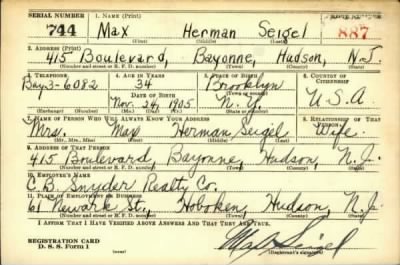 SERIAL NUMBER 1. NAME (Print) ORDER NUMBER
744 Max Herman Seigel 887
(First) (Middle) (Last)
2. ADDRESS (Print)
415 Boulevard, Bayonne, Hudson, N.J.
(Number and street or R. F. D. number) (Town) (County) (State)
3. TELEPHONE 4. AGE IN YEARS 5. PLACE OF BIRTH 6. COUNTRY OF CITIZENSHIP
Bay. 3-6082 34 Brooklyn
DATE OF BIRTH (Town or county)
Nov. 24, 1905 N.Y. U.S.A
(Exchange) (Number) (Mo.) (Day) (Yr.) (State or country)
7. NAME OF PERSON WHO WILL ALWAYS KNOW YOUR ADDRESS 8. RELATIONSHIP OF THAT PERSON
Mrs. Max Herman Seigel Wife
(Mr., Mrs., Miss) (First) (Middle) (Last)
9. ADDRESS OF THAT PERSON
415 Boulevard, Bayonne, Hudson, N.J.
(Number and street or R. F. D. number) (Town) (County) (State)
10. EMPLOYER'S NAME
C.B. Snyder Realty Co.
11. PLACE OF EMPLOYMENT OR BUSINESS
61 Newark St., Hoboken, Hudson, N.J.
(Number and street or R. F. D. number) (Town) (County) (State)
I AFFIRM THAT I HAVE VERIFIED ABOVE ANSWERS AND THAT THEY ARE TRUE.
REGISTRATION CARD
D. S. S. Form 1 Max Seigel
(Registrant's signature)